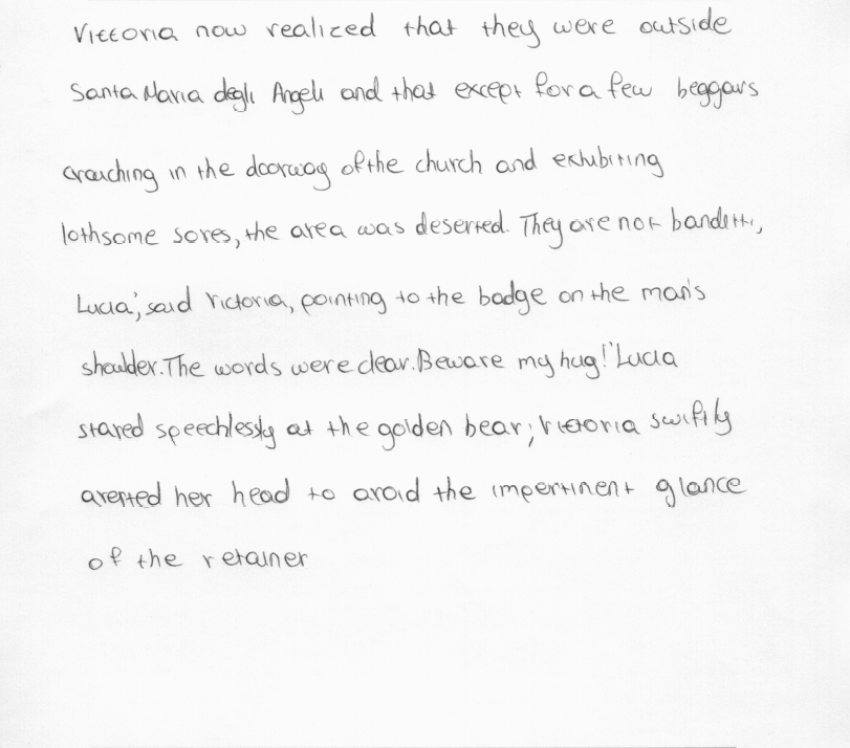 Vittoria now realized that they were outside
Santa Maria degli Angeli and that except for a few beggars
crouching in the doorway of the church and exhibiting
lothsome sores, the area was deserted. They are not bandetti,
Lucia', said Victoria, pointing to the badge on the man's
shoulder. The words were clear. Beware my hug!' Lucia
stared speechlessly at the golden bear; Vittoria swiftly
averted her head to avoid the impertinent glance
of the retainer